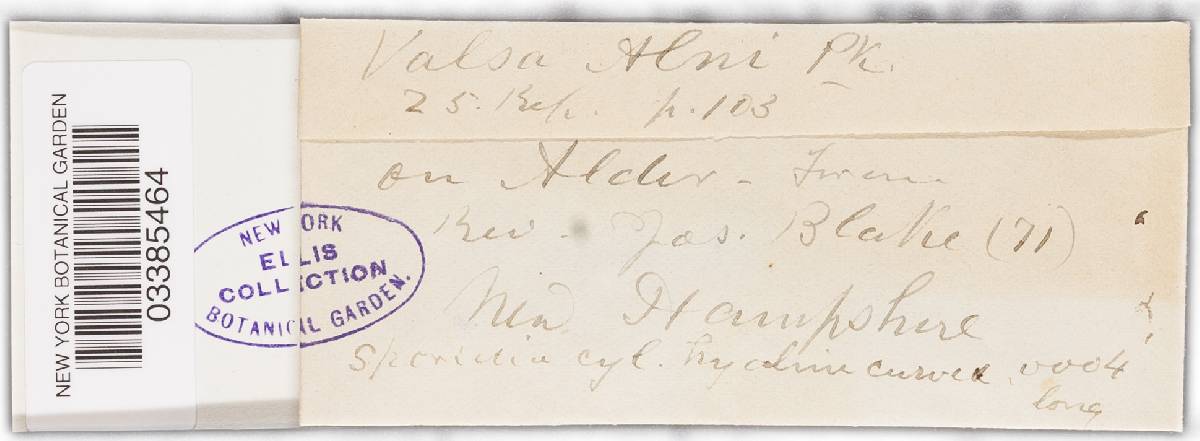 Valsa Alni Pk.
25. Rep. p. 103
on Alder - From
Rev. Jos. Blake (71)
New Hampshire
Sporidia cyl. hyaline curved .0004
long
NEW YORK
ELLIS
COLLECTION
BOTANICAL GARDEN.
NEW YORK BOTANICAL GARDEN
03385464